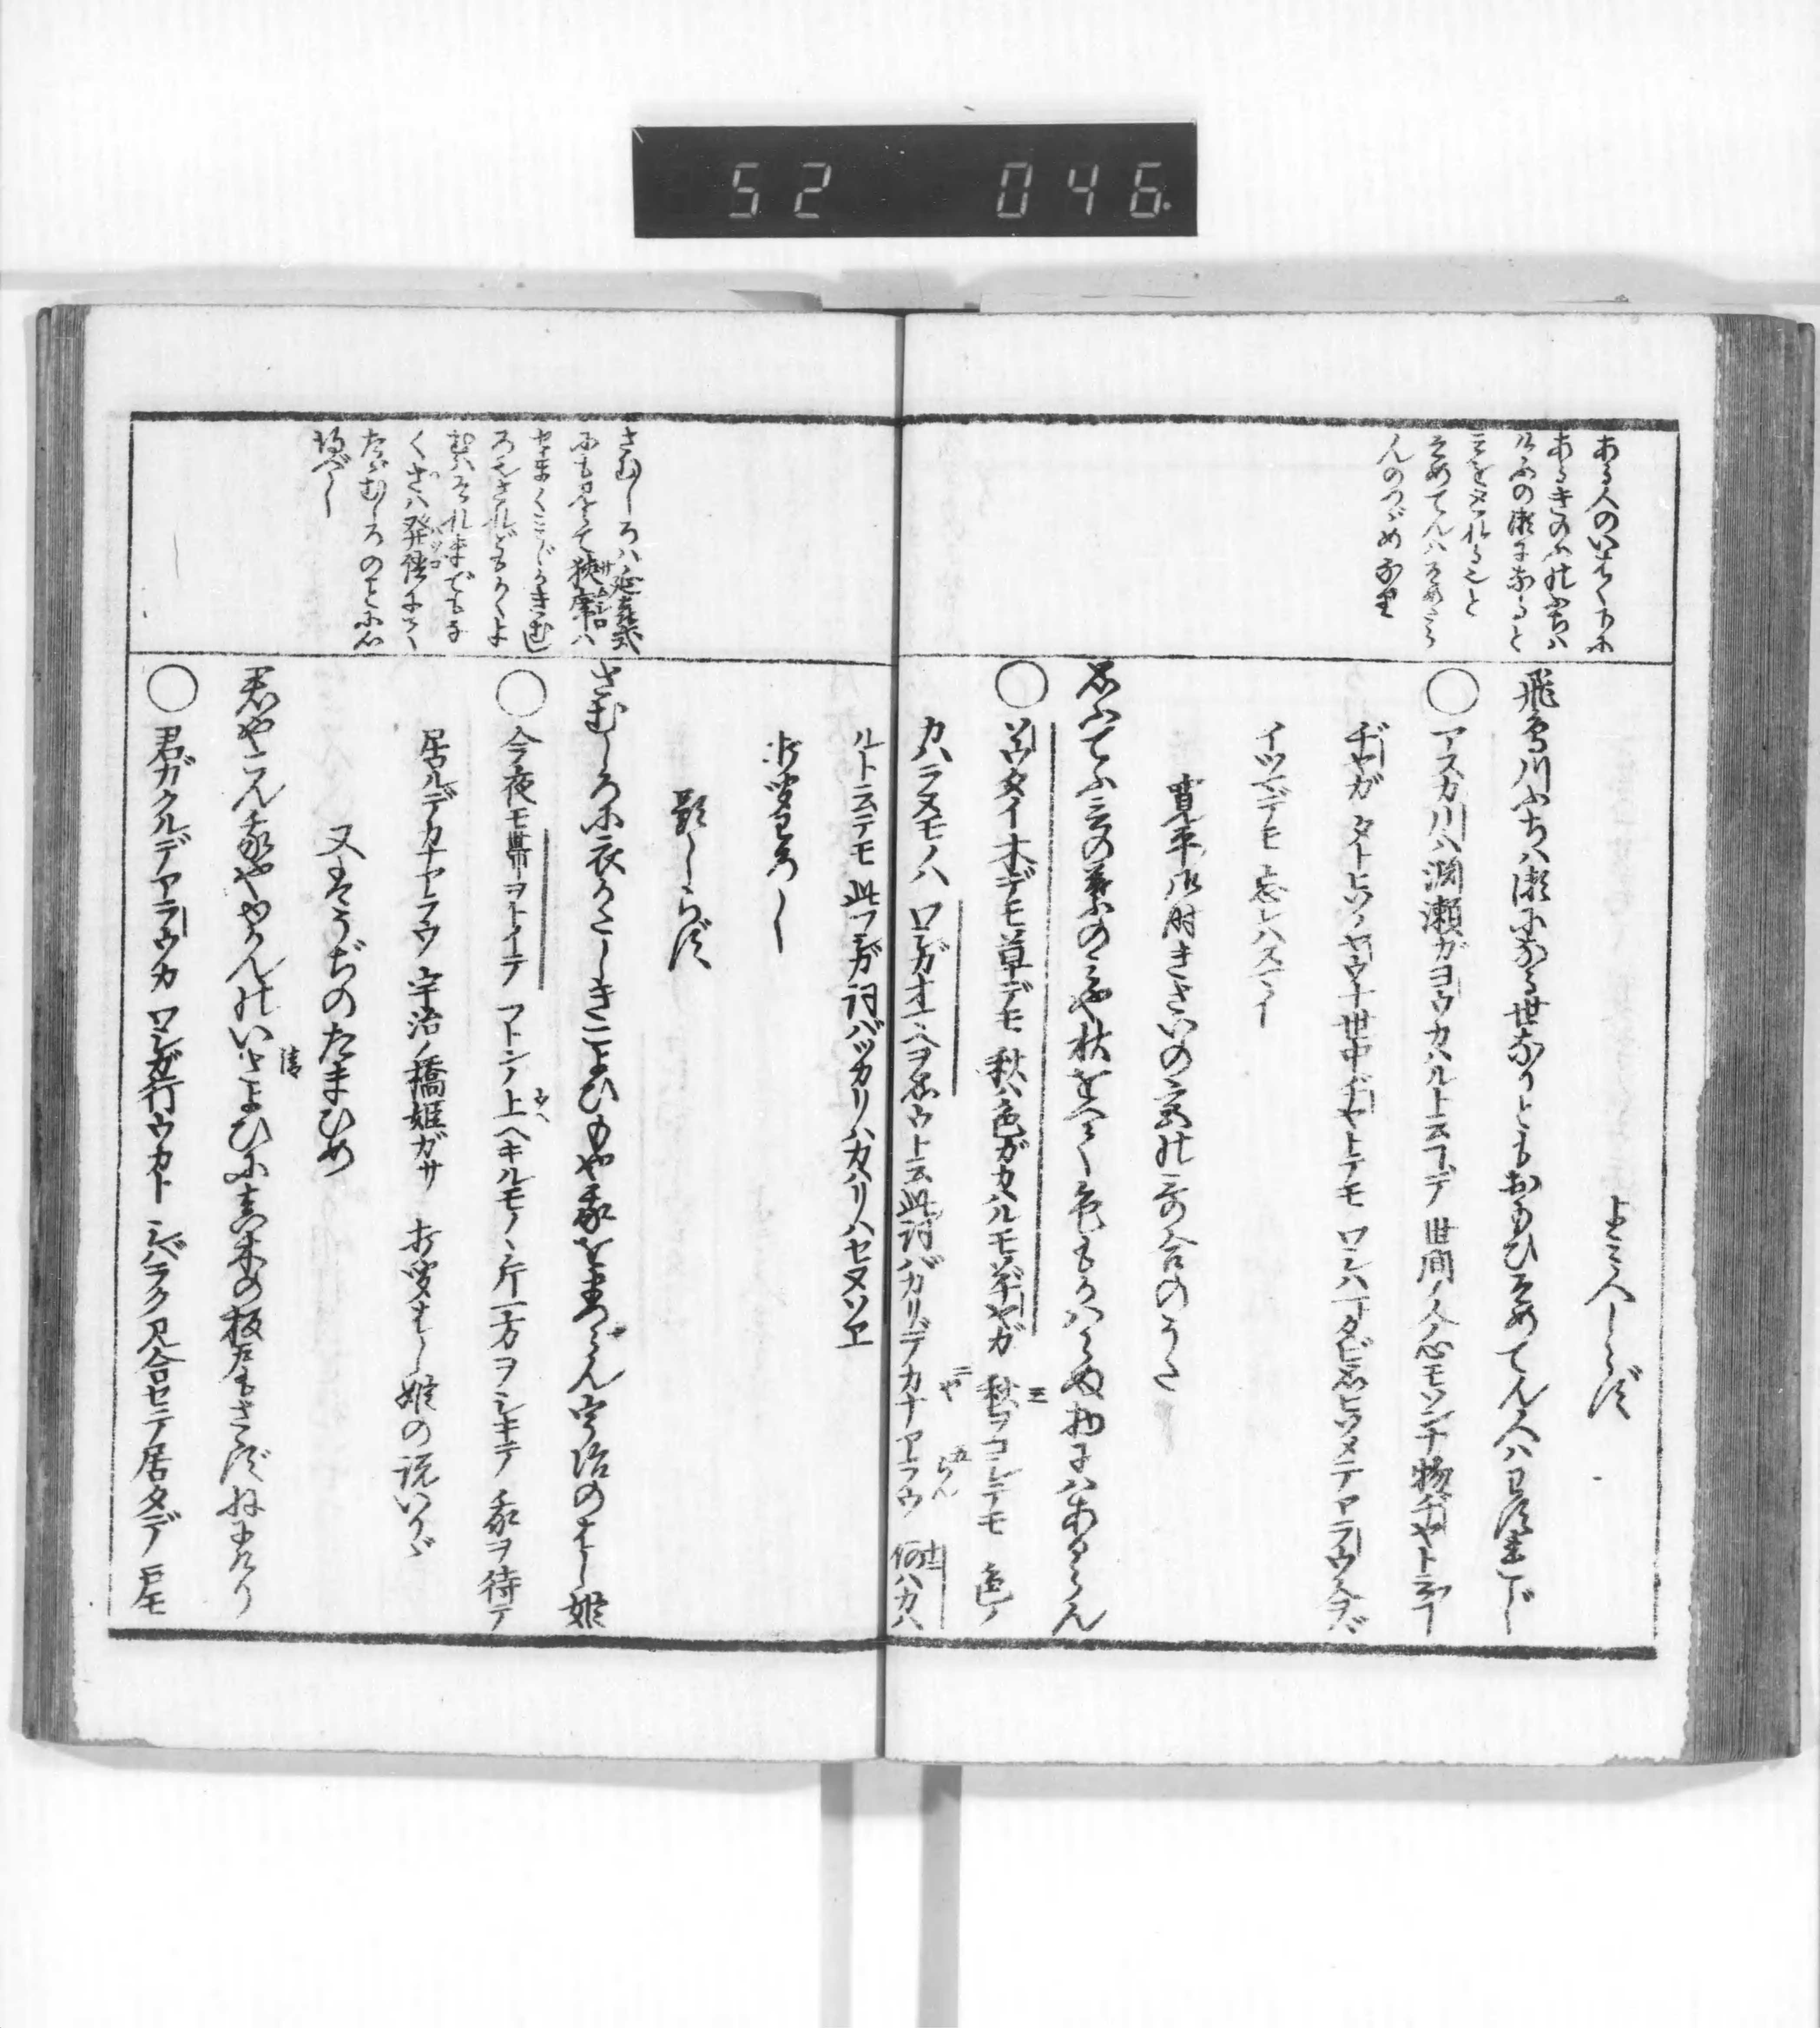 52 046
ある人のいはく下に
あるきのふの淵は
けふの瀬になると
そめてんは
んのつゞめなり
よみ人しらず
飛鳥川ふちは瀬になる世なりともおもひそめてん人はわすれじ
○アスカ川ハ淵瀬ガヨウカハルト云フデ 世間ノ人ノ心モソンナ物ヂヤト云
ヂヤガ タトヒソノヤウナ世中ヂヤトテモ ワシハ一タビ思ヒソメテアラウ人ヲバ
イツマデモ忘レハスマイ
寛平御時きさいの宮の歌合のうた
思ふてふ言の葉のみや秋をへて色もかはらぬ物にはあるらん
○ソウタイ木デモ草デモ 秋ハ色ガカハルモノヂヤガ 秋ヲコシテモ 色ノ
カハラヌモノハ ワシガオマヘヲ思ウト云此詞バカリデカナアラウ 何ハカハ
ルト云テモ 此ワシガ詞バッカリハカハリハセヌゾヱ
打聞わろし
さむしろハ延喜式
にも見えて狭席ハ
せまくみじかきむ
ろ也されどもかくよ
むハそれまでもな
くさハ発語にて
たゞむしろのことに心
得べし
題しらず
さむしろに衣かたしきこよひもや我をまつらん宇治のはし姫
○今夜モ帯ヲトイテ マトシノ上ヘキルモノヽ片一方ヲシキテ 我ヲ待テ
居ルデカナアラウ 宇治ノ橋姫ガサ 打聞はし姫の説いかゞ
又はうぢのたまひめ
君やこん我やゆかんのいさよひに真木の板戸もさゝずねにけり
○君ガクルデアラウカ ワシガ行ウカト シバラク見合セテ居タデ 戸モ